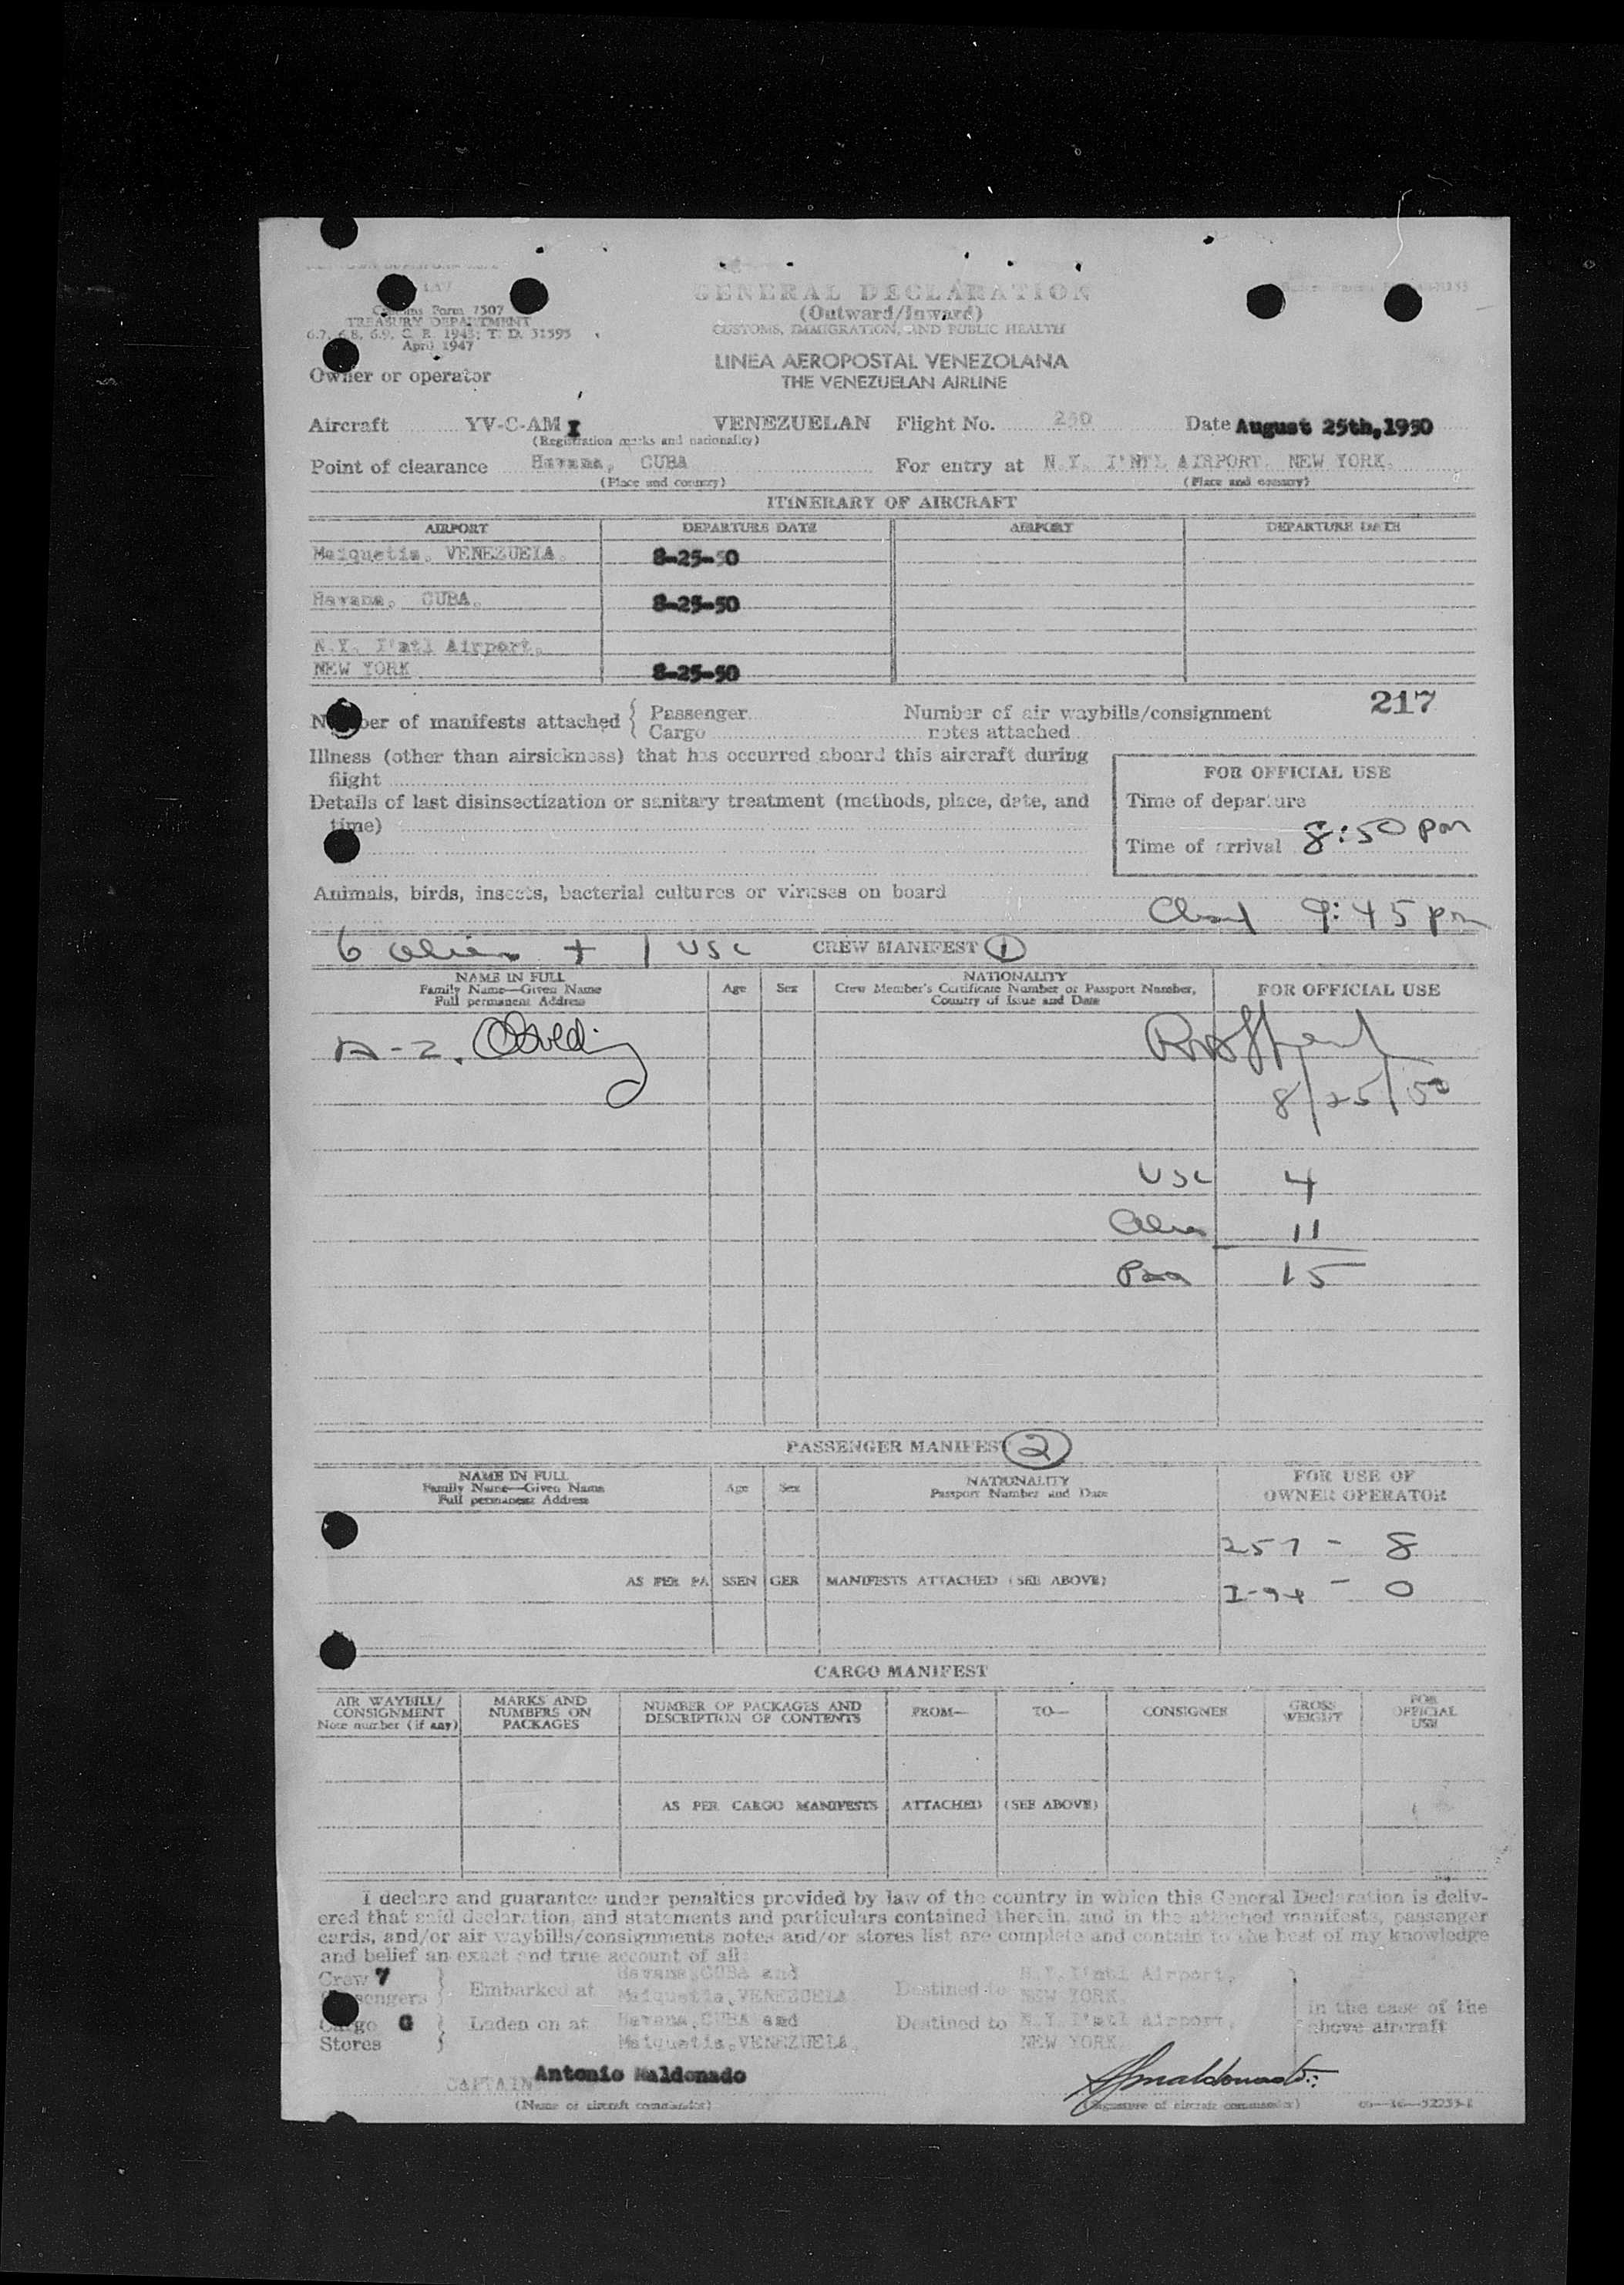 Customs Form 7507
TREASURY DEPARTMENT
6.7, 6.8, 6.9, C. R. 1943; T. D. 51595
April 1947
GENERAL DECLARATION
(Outward/Inward)
CUSTOMS, IMMIGRATION, AND PUBLIC HEALTH
LINEA AEROPOSTAL VENEZOLANA
THE VENEZUELAN AIRLINE
Owner or operator
Aircraft YV-C-AMI VENEZUELAN Flight No. 250 Date August 25th, 1950
(Registration marks and nationality)
Point of clearance Havana, CUBA For entry at N.Y. I'NTL AIRPORT. NEW YORK.
(Place and country) (Place and country)
ITINERARY OF AIRCRAFT
AIRPORT DEPARTURE DATE AIRPORT DEPARTURE DATE
Maiquetia, VENEZUELA. 8-25-50
Havana, CUBA. 8-25-50
N.Y. I'ntl Airport.
NEW YORK 8-25-50
217
Number of manifests attached { Passenger Number of air waybills/consignment
Cargo notes attached
Illness (other than airsickness) that has occurred aboard this aircraft during
flight
Details of last disinsectization or sanitary treatment (methods, place, date, and
time)
FOR OFFICIAL USE
Time of departure
Time of arrival 8:50 pm
Animals, birds, insects, bacterial cultures or viruses on board
9:45 pm
6 alien + 1 USC CREW MANIFEST 1
NAME IN FULL
Family Name—Given Name
Full permanent Address
Age Sex
NATIONALITY
Crew Member's Certificate Number or Passport Number,
Country of Issue and Date
FOR OFFICIAL USE
A-2.
8/25/50
USC 4
Alien 11
Pax 15
PASSENGER MANIFEST 2
NAME IN FULL
Family Name—Given Name
Full permanent Address
Age Sex
NATIONALITY
Passport Number and Date
FOR USE OF
OWNER OPERATOR
257 - 8
AS PER PASSENGER MANIFESTS ATTACHED (SEE ABOVE)
I-94 - 0
CARGO MANIFEST
AIR WAYBILL/
CONSIGNMENT
Note number (if any)
MARKS AND
NUMBERS ON
PACKAGES
NUMBER OF PACKAGES AND
DESCRIPTION OF CONTENTS
FROM— TO— CONSIGNEE
GROSS
WEIGHT
FOR
OFFICIAL
USE
AS PER CARGO MANIFESTS ATTACHED (SEE ABOVE)
I declare and guarantee under penalties provided by law of the country in which this General Declaration is deliv-
ered that said declaration, and statements and particulars contained therein, and in the attached manifests, passenger
cards, and/or air waybills/consignments notes and/or stores list are complete and contain to the best of my knowledge
and belief an exact and true account of all:
Crew 7
Passengers } Embarked at Havana, CUBA and Maiquetia, VENEZUELA. Destined to N.Y. I'ntl Airport, NEW YORK.
Cargo G
Stores } Laden on at Havana, CUBA and Maiquetia, VENEZUELA. Destined to N.Y. I'ntl Airport, NEW YORK.
in the case of the
above aircraft
CAPTAIN Antonio Maldonado
(Name of aircraft commander) (Signature of aircraft commander)